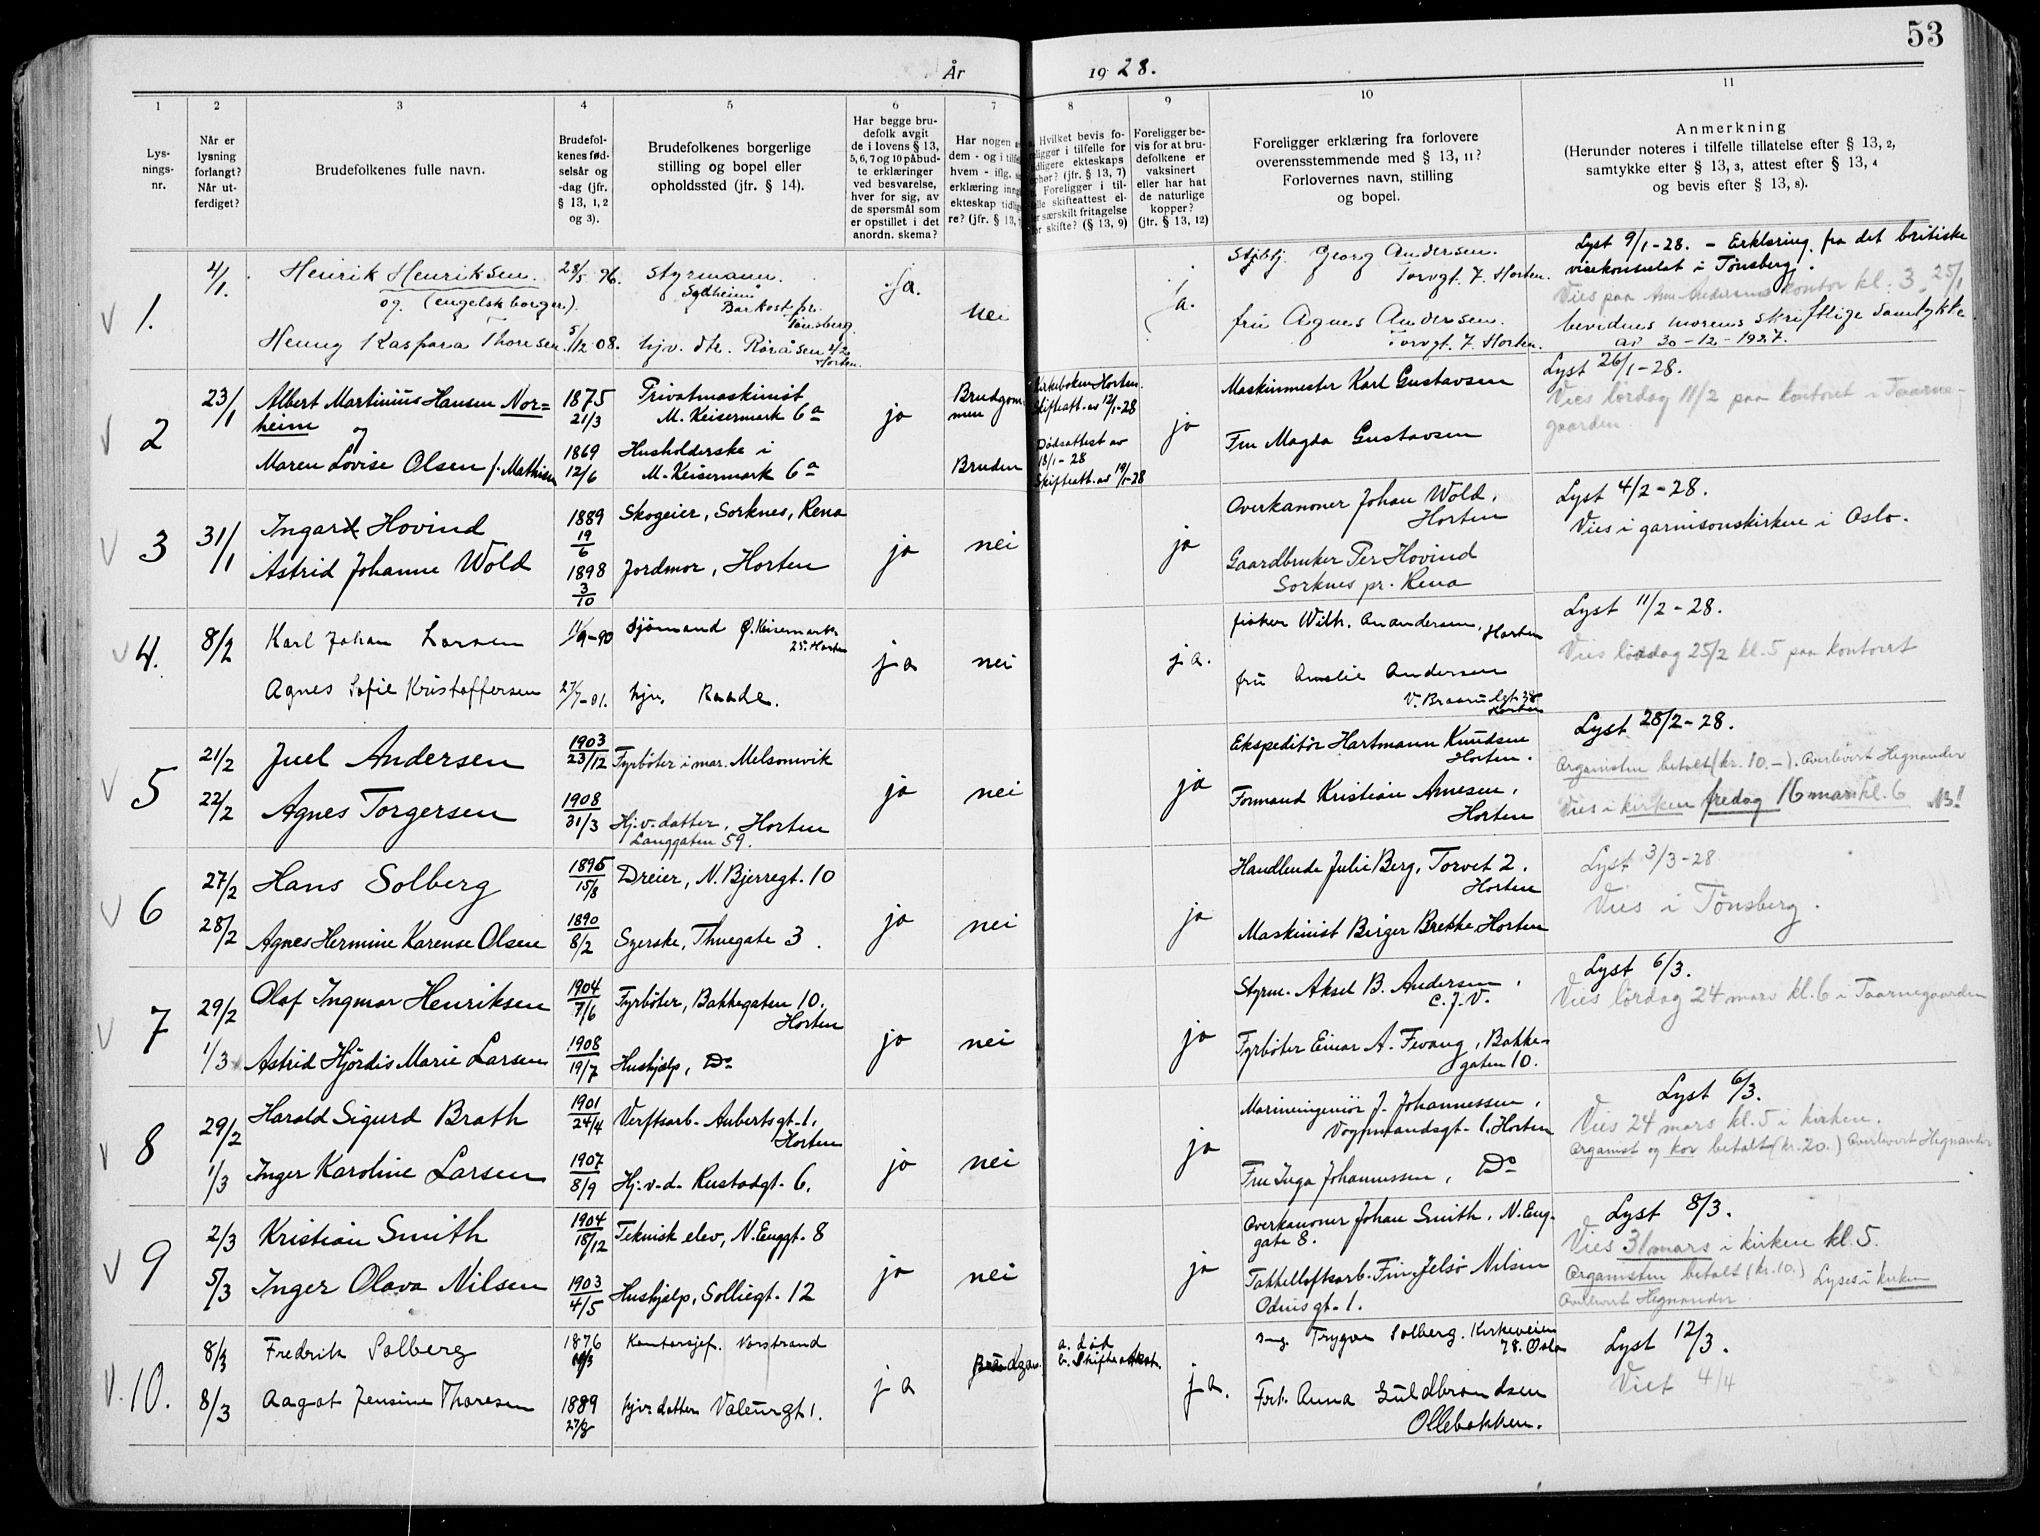 53
År 1928.
1
2
3
4
5
6
7
8
9
10
11
Lys-
nings-
nr.
Når er
lysning
forlangt?
Når ut-
ferdiget?
Brudefolkenes fulle navn.
Brudefol-
kenes fød-
selsår og
-dag (jfr.
§ 13, 1, 2
og 3).
Brudefolkenes borgerlige
stilling og bopel eller
opholdssted (jfr. § 14).
Har begge bru-
defolk avgit
de i lovens § 13,
5, 6, 7 og 10 påbud-
te erklæringer
ved besvarelse,
hver for sig, av
de spørsmål som
er opstillet i det
anordn. skema?
Har nogen
dem - og i tilfe
hvem - iflg.
erklæring inng
ekteskap tidlig
re? (jfr. § 13,
Hvilket bevis fo-
religger i tilfelle for
ekteskaps
(jfr. § 13, 7)
Foreligger i til-
skifteattest el-
særskilt fritagelse
skifte? (§ 13, 9)
Foreligger be-
vis for at bru-
defolkene er
vaksinert
eller har hat
de naturlige
kopper?
(jfr. § 13, 12)
Foreligger erklæring fra forlovere
overensstemmende med § 13, 11?
Forlovernes navn, stilling
og bopel.
Anmerkning
(Herunder noteres i tilfelle tillatelse efter § 13, 2,
samtykke efter § 13, 3, attest efter § 13, 4
og bevis efter § 13, 8).
V 1.
4/1.
Henrik Henriksen.
og (engelsk borger).
Henny Kaspara Thoresen.
28/5 96.
5/12 08.
Styrmann.
Barkost pr.
Tønsberg.
hjv. dtr. Røråsen 2/2
Horten.
Ja.
nei
Ja.
Georg Andersen.
Torvgt. 7. Horten.
fru Agnes Andersen.
Torvgt. 7. Horten.
Lyst 9/1-28. – Erklæring fra det britiske
visekonsulat i Tønsberg.
Vies paa kontor kl. 3. 25/1
bevidnes morens skriftlige samtykke
av 30-12-1927.
V 2
23/1
Albert Martinius Hansen Nor=
heim
og
Maren Lovise Olsen f. Mathisen
1875
21/3
1869
12/6
Privatmaskinist
M. Keisermark 6a
Husholderske i
M. Keisermark 6a
ja
Brudgom-
men
Bruden
Kirkeboken Horten.
Skifteatt. av 12/1-28
Dødsattest av
18/1-28
Skifteatt. av 19/1-28
ja
Maskinmester Karl Gustavsen
Fru Magda Gustavsen
Lyst 26/1-28.
Vies lördag 11/2 paa kontoret i Taarne-
gaarden.
V 3
31/1
Ingard Hovind
Astrid Johanne Wold
1889
19
6
1898
3
10
Skogeier, Sorknes, Rena
Jordmor, Horten
ja
nei
ja
Overkanoner Johan Wold,
Horten
Gaardbruker Per Hovind
Sorknes pr. Rena
Lyst 4/2-28.
Vies i garnisonskirken i Oslo.
V 4.
8/2
Karl Johan Larsen
Agnes Sofie Kristoffersen
11/9-90
27/7-01.
Sjömand Ø. Keisermark
25. Horten
hjv. Raade.
ja
nei
ja.
fisker Wilh. Andersen,
Horten
fru Amalie Andersen
V. Braarudgt. 38
Horten
Lyst 11/2-28.
Vies lördag 25/2 kl. 5 paa kontoret
V 5
21/2
22/2
Juel Andersen
Agnes Torgersen
1903
23/12
1908
31/3
Fyrböter i mar. Melsomvik
Hj.v. datter, Horten
Langgaten 59.
ja
nei
ja
Ekspeditör Hartmann Knudsen
Horten.
Formand Kristian Arnesen,
Horten
Lyst 28/2-28.
Organisten betalt (kr. 10.-). Overlevert Hegnander
Vies i kirken fredag 16 mars kl. 6 NB!
V 6
27/2
28/2
Hans Solberg
Agnes Hermine Karense Olsen
1895
15/8
1890
8/2
Dreier, N. Bjerregt. 10
Syerske, Thuegate 3.
ja
nei
ja
Handlende Julie Berg, Torvet 2.
Horten
Maskinist Birger Brekke, Horten
Lyst 3/3-28
Vies i Tönsberg.
V 7
29/2
1/3
Olaf Ingmar Henriksen
Astrid Hjördis Marie Larsen
1904
7/6
1908
19/7
Fyrböter, Bakkegaten 10.
Horten
Hushjælp, Do
ja
nei
ja
Styrm. Aksel B. Andersen,
C. J. V.
Fyrböter Einar A. Fevang, Bakke-
gaten 10.
Lyst 6/3.
Vies lördag 24 mars kl. 6 i Taarnegaarden
V 8
29/2
1/3
Harald Sigurd Brath
Inger Karoline Larsen
1901
24/4
1907
8/9
Verftsarb. Aubertsgt. 1,
Horten
Hj.v.d. Rustadgt. 6.
ja
nei
ja
Marineingeniör J. Johannessen,
Vognmandsgt. 1, Horten
Fru Inga Johannessen, Do
Lyst 6/3.
Vies 24 mars kl. 5 i kirken.
Organist og kor betalt (kr. 20.) Overlevert Hegnander
V 9
2/3
5/3
Kristian Smith
Inger Olava Nilsen
1904
18/12
1903
4/5
Teknisk elev, N. Enggt. 8
Hushjælp, Solliegt. 12
ja
nei
ja
Overkanoner Johan Smith, N. Eng-
gate 8.
Takkelloftsarb. Finn Jelsö Nilsen
Odinsgt. 1.
Lyst 8/3.
Vies 31 mars i kirken kl. 5.
Organisten betalt (kr. 10.) Lyses i kirken
Overlevert Hegnander
V. 10.
8/3
8/3
Fredrik Solberg
Aagot Jensine Thoresen
1876
1889
27/8
Kontorsjef. Vorstrand
hjv. datter Valeurgt 1.
ja
Brudgom.
a. död
b. Skifteattest.
ja.
Trygve Solberg. Kirkeveien
78. Oslo
Frk. Anna Guldbrandsen
Ollebakken.
Lyst 12/3.
Viet 4/4